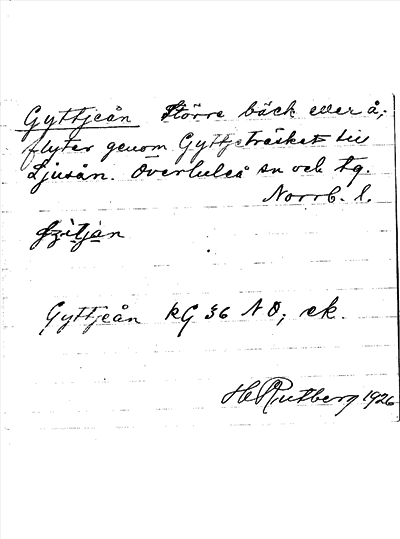 Gyttjeån Större bäck eller å;
flyter genom Gyttjeträsket till
Ljusån. Överluleå sn och tg.
Norrb. l.
Gyttjeån KG 36 NO; ek.
H Rutberg 1926